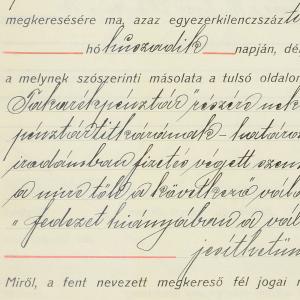 megkeresésére ma, azaz egyezerkilencszázti
hó huszadik napján, dé
a melynek szószerinti másolata a tulsó oldalon
Takarékpénztár" részére nek
pénztártitkárának - határo
irodámban fizetés végett szem
a mire tőle a következő vála
„fedezet hiányában a vál
jesíthetün
Miről, a fent nevezett megkereső fél jogai m